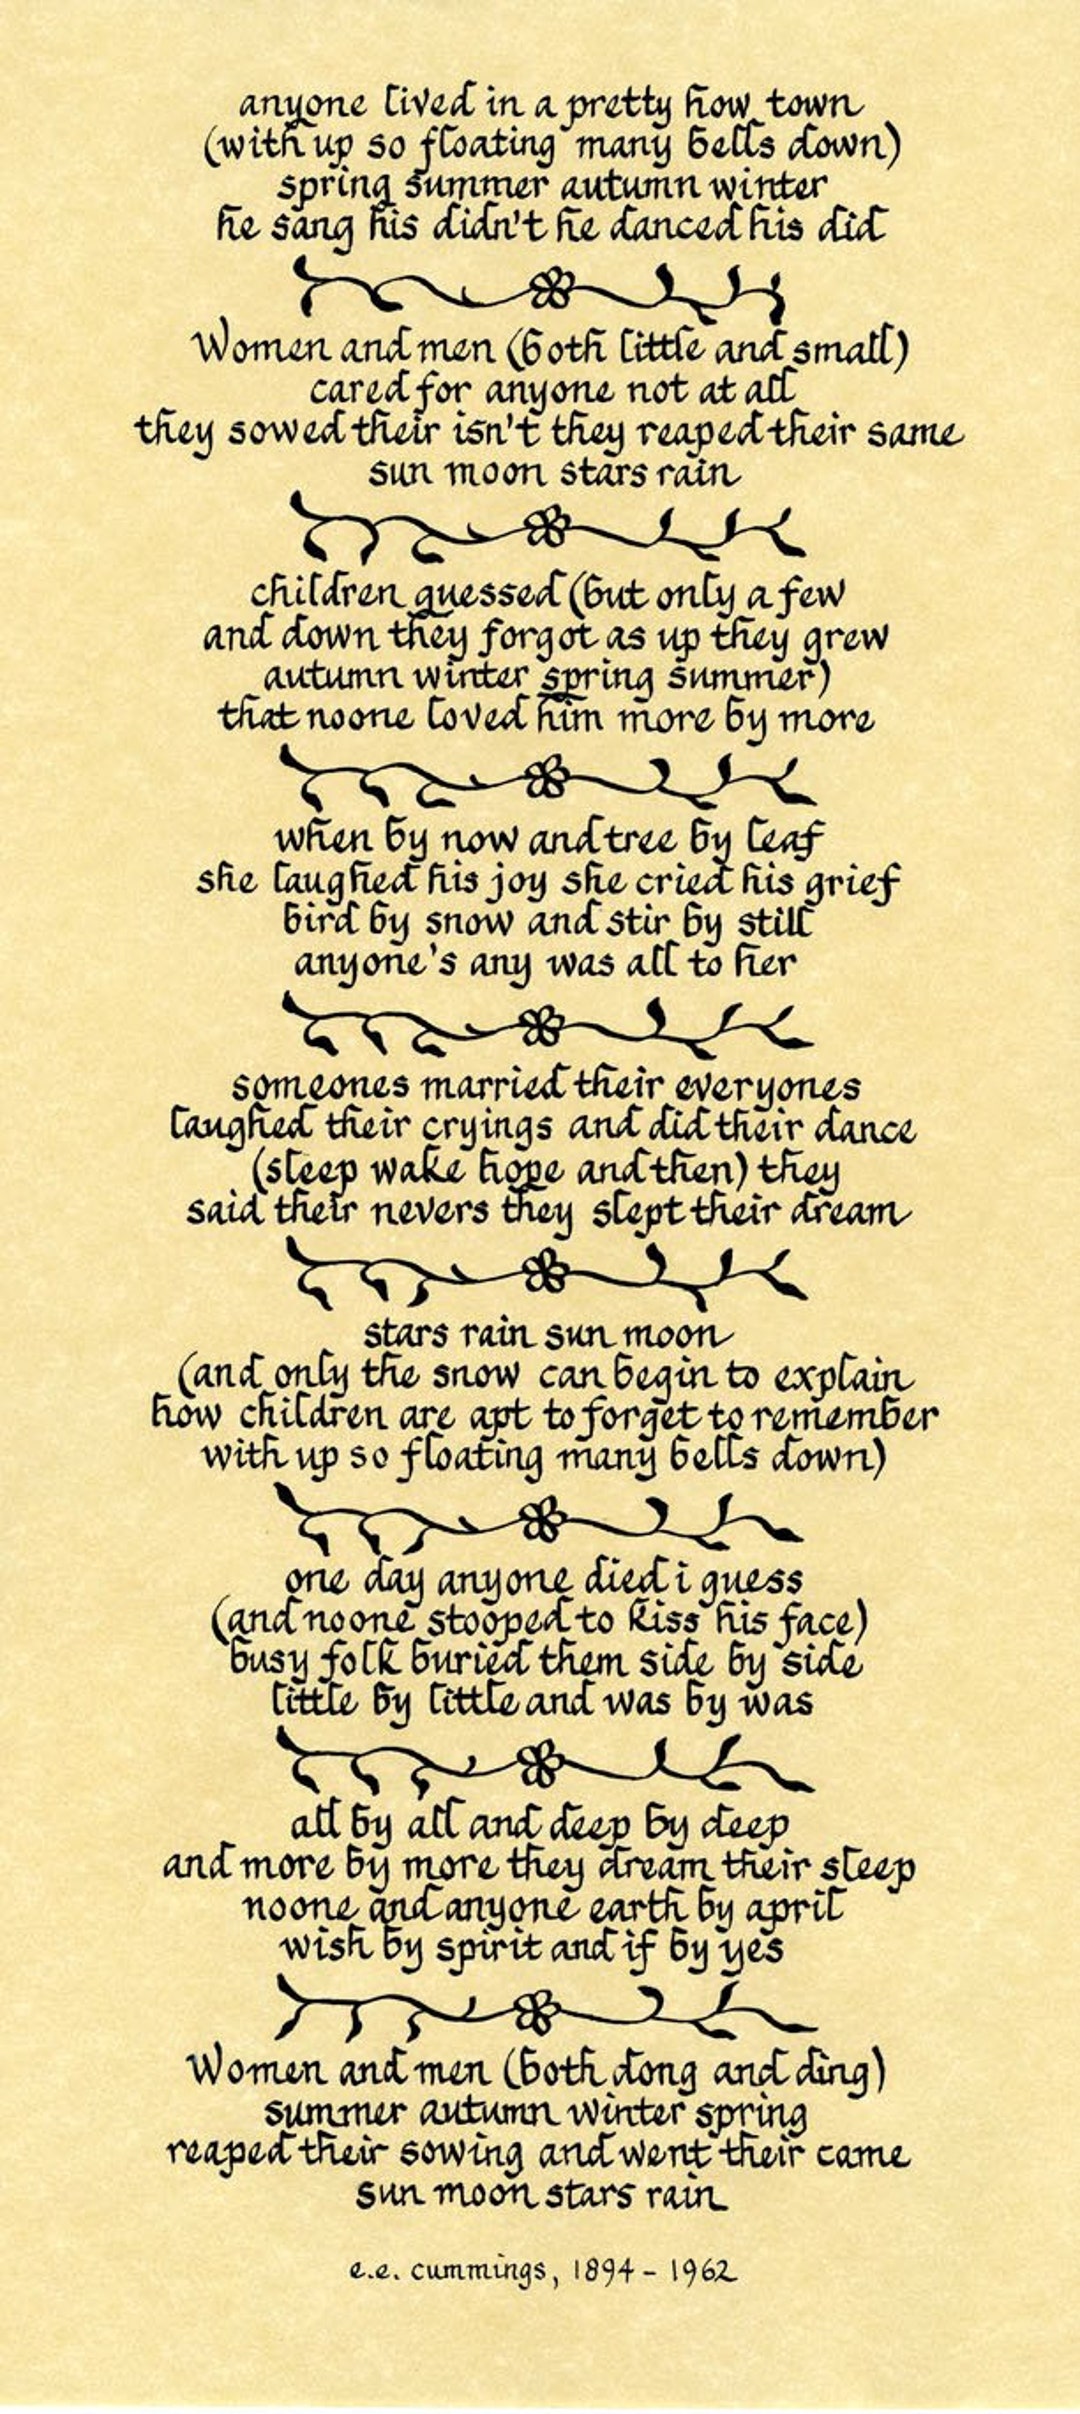 anyone lived in a pretty how town
(with up so floating many bells down)
spring summer autumn winter
he sang his didn't he danced his did
Women and men (both little and small)
cared for anyone not at all
they sowed their isn't they reaped their same
sun moon stars rain
children guessed (but only a few
and down they forgot as up they grew
autumn winter spring summer)
that noone loved him more by more
when by now and tree by leaf
she laughed his joy she cried his grief
bird by snow and stir by still
anyone's any was all to her
someones married their everyones
laughed their cryings and did their dance
(sleep wake hope and then) they
said their nevers they slept their dream
stars rain sun moon
(and only the snow can begin to explain
how children are apt to forget to remember
with up so floating many bells down)
one day anyone died i guess
(and noone stooped to kiss his face)
busy folk buried them side by side
little by little and was by was
all by all and deep by deep
and more by more they dream their sleep
noone and anyone earth by april
wish by spirit and if by yes
Women and men (both dong and ding)
summer autumn winter spring
reaped their sowing and went their came
sun moon stars rain
e.e. cummings, 1894 - 1962